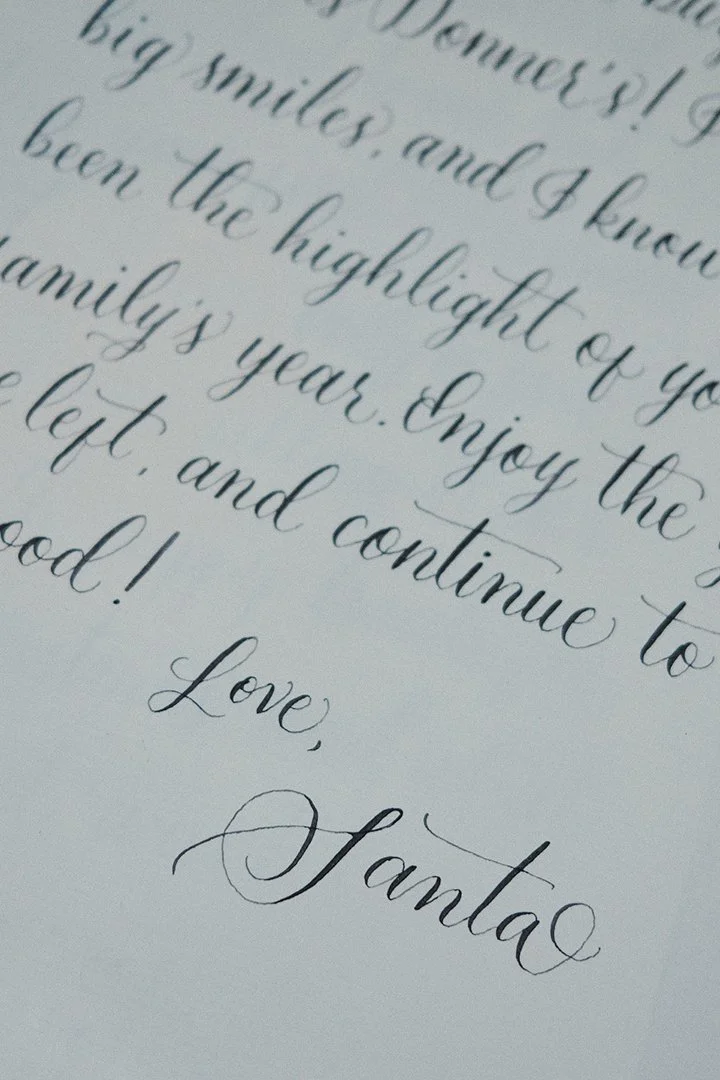 Donner's! I
big smiles, and I know
been the highlight of yo
amily's year. Enjoy the
left, and continue to
ood!
Love,
Santa